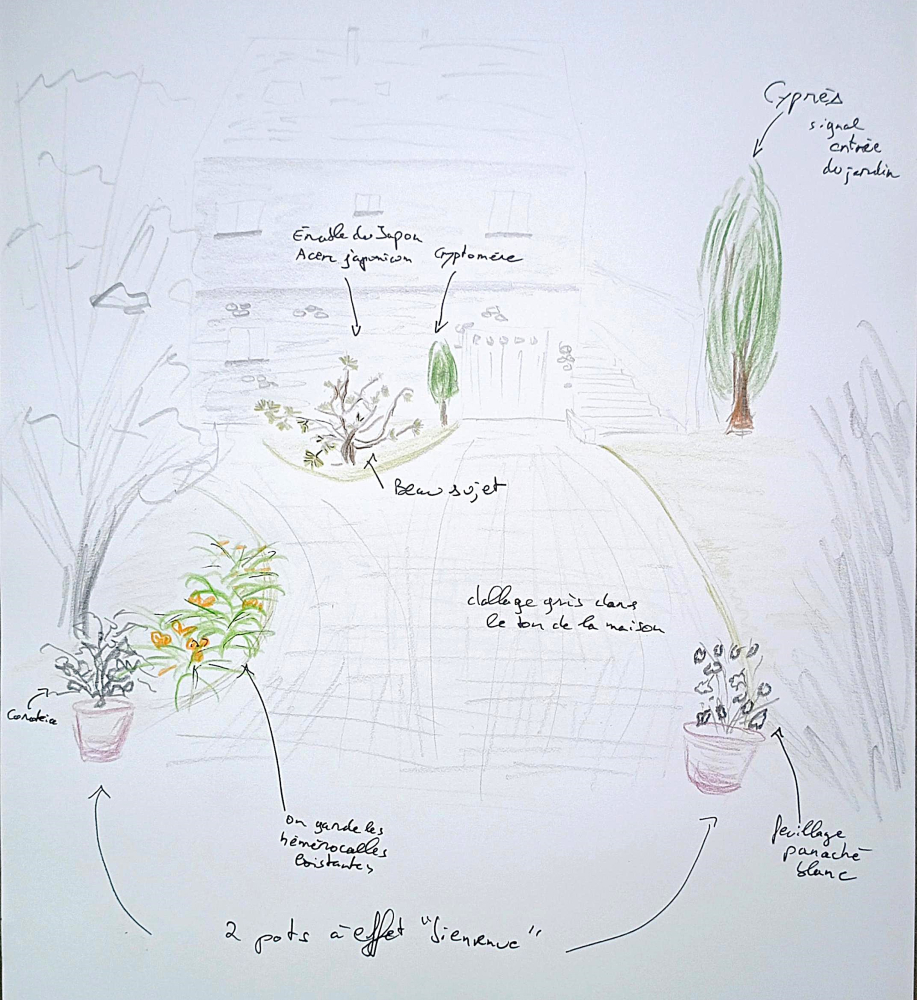 Cyprès
signal
entrée
du jardin
Érable du Japon
Acer japonicum
Cryptomère
Beau sujet
dallage gris dans
le ton de la maison
on garde les
hémérocalles
existantes
feuillage
panaché
blanc
2 pots à effet "bienvenue"